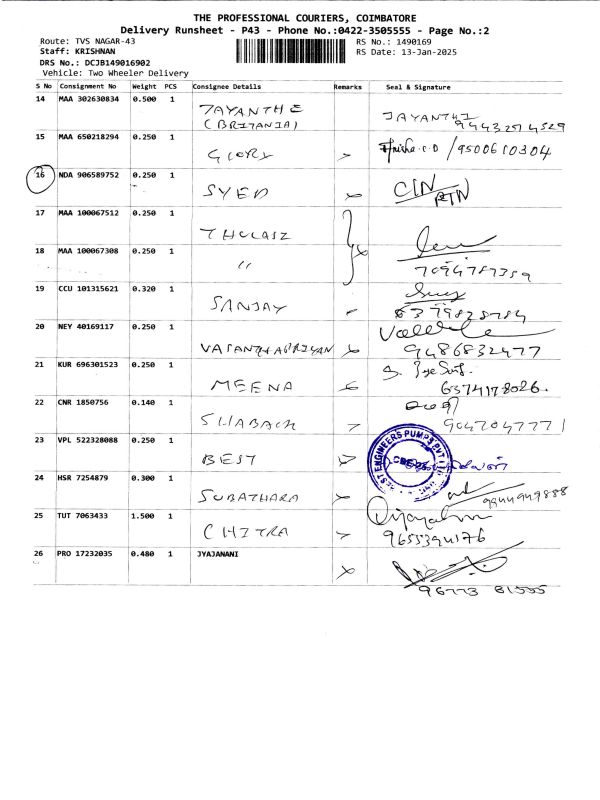 THE PROFESSIONAL COURIERS, COIMBATORE
Delivery Runsheet - P43 - Phone No.:0422-3505555 - Page No.:2
Route: TVS NAGAR-43
RS No.: 1490169
Staff: KRISHNAN
RS Date: 13-Jan-2025
DRS No.: DCJB149016902
Vehicle: Two Wheeler Delivery
S No Consignment No Weight PCS Consignee Details Remarks Seal & Signature
14 MAA 302630834 0.500 1 JAYANTHE JAYANTHI
(BRITANIA) 9443274529
15 MAA 650218294 0.250 1
GLORY /9500610304
16 NDA 906589752 0.250 1
SYED
17 MAA 100067512 0.250 1
THULASI
18 MAA 100067308 0.250 1
" 7094787359
19 CCU 101315621 0.320 1
SANJAY
20 NEY 40169117 0.250 1
9486832477
21 KUR 696301523 0.250 1
MEENA 6374178026.
22 CNR 1850756 0.140 1
9047047771
23 VPL 522328088 0.250 1
BEST
BEST ENGINEERS PUMPS PVT LTD
24 HSR 7254879 0.300 1
SUBATHARA 9944949888
25 TUT 7063433 1.500 1
CHITRA 9655394176
26 PRO 17232035 0.480 1 JYAJANANI
96773 81555